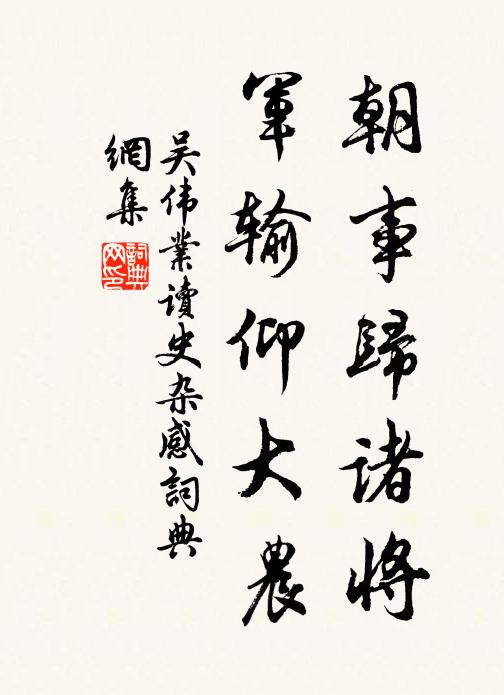 朝事歸诸將
軍输仰大農
吴伟業讀史杂感詞典
網集
詞典网印